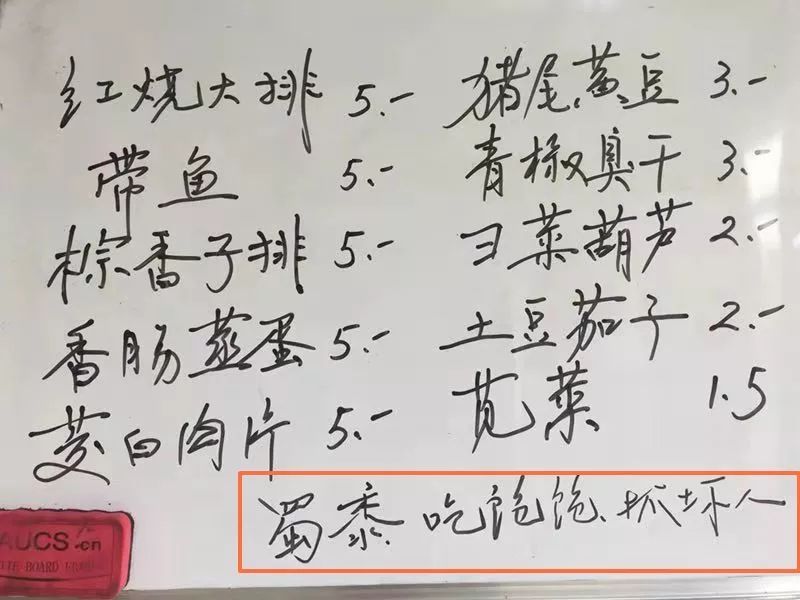 红烧大排 5.-
带鱼 5.-
棕香子排 5.-
香肠蒸蛋 5.-
茭白肉片 5.-
猪尾黄豆 3.-
青椒臭干 3.-
彐菜葫芦 2.-
土豆茄子 2.-
苋菜 1.5
蜀黍.吃饱饱、抓坏人
AUCS.cn
BOARD